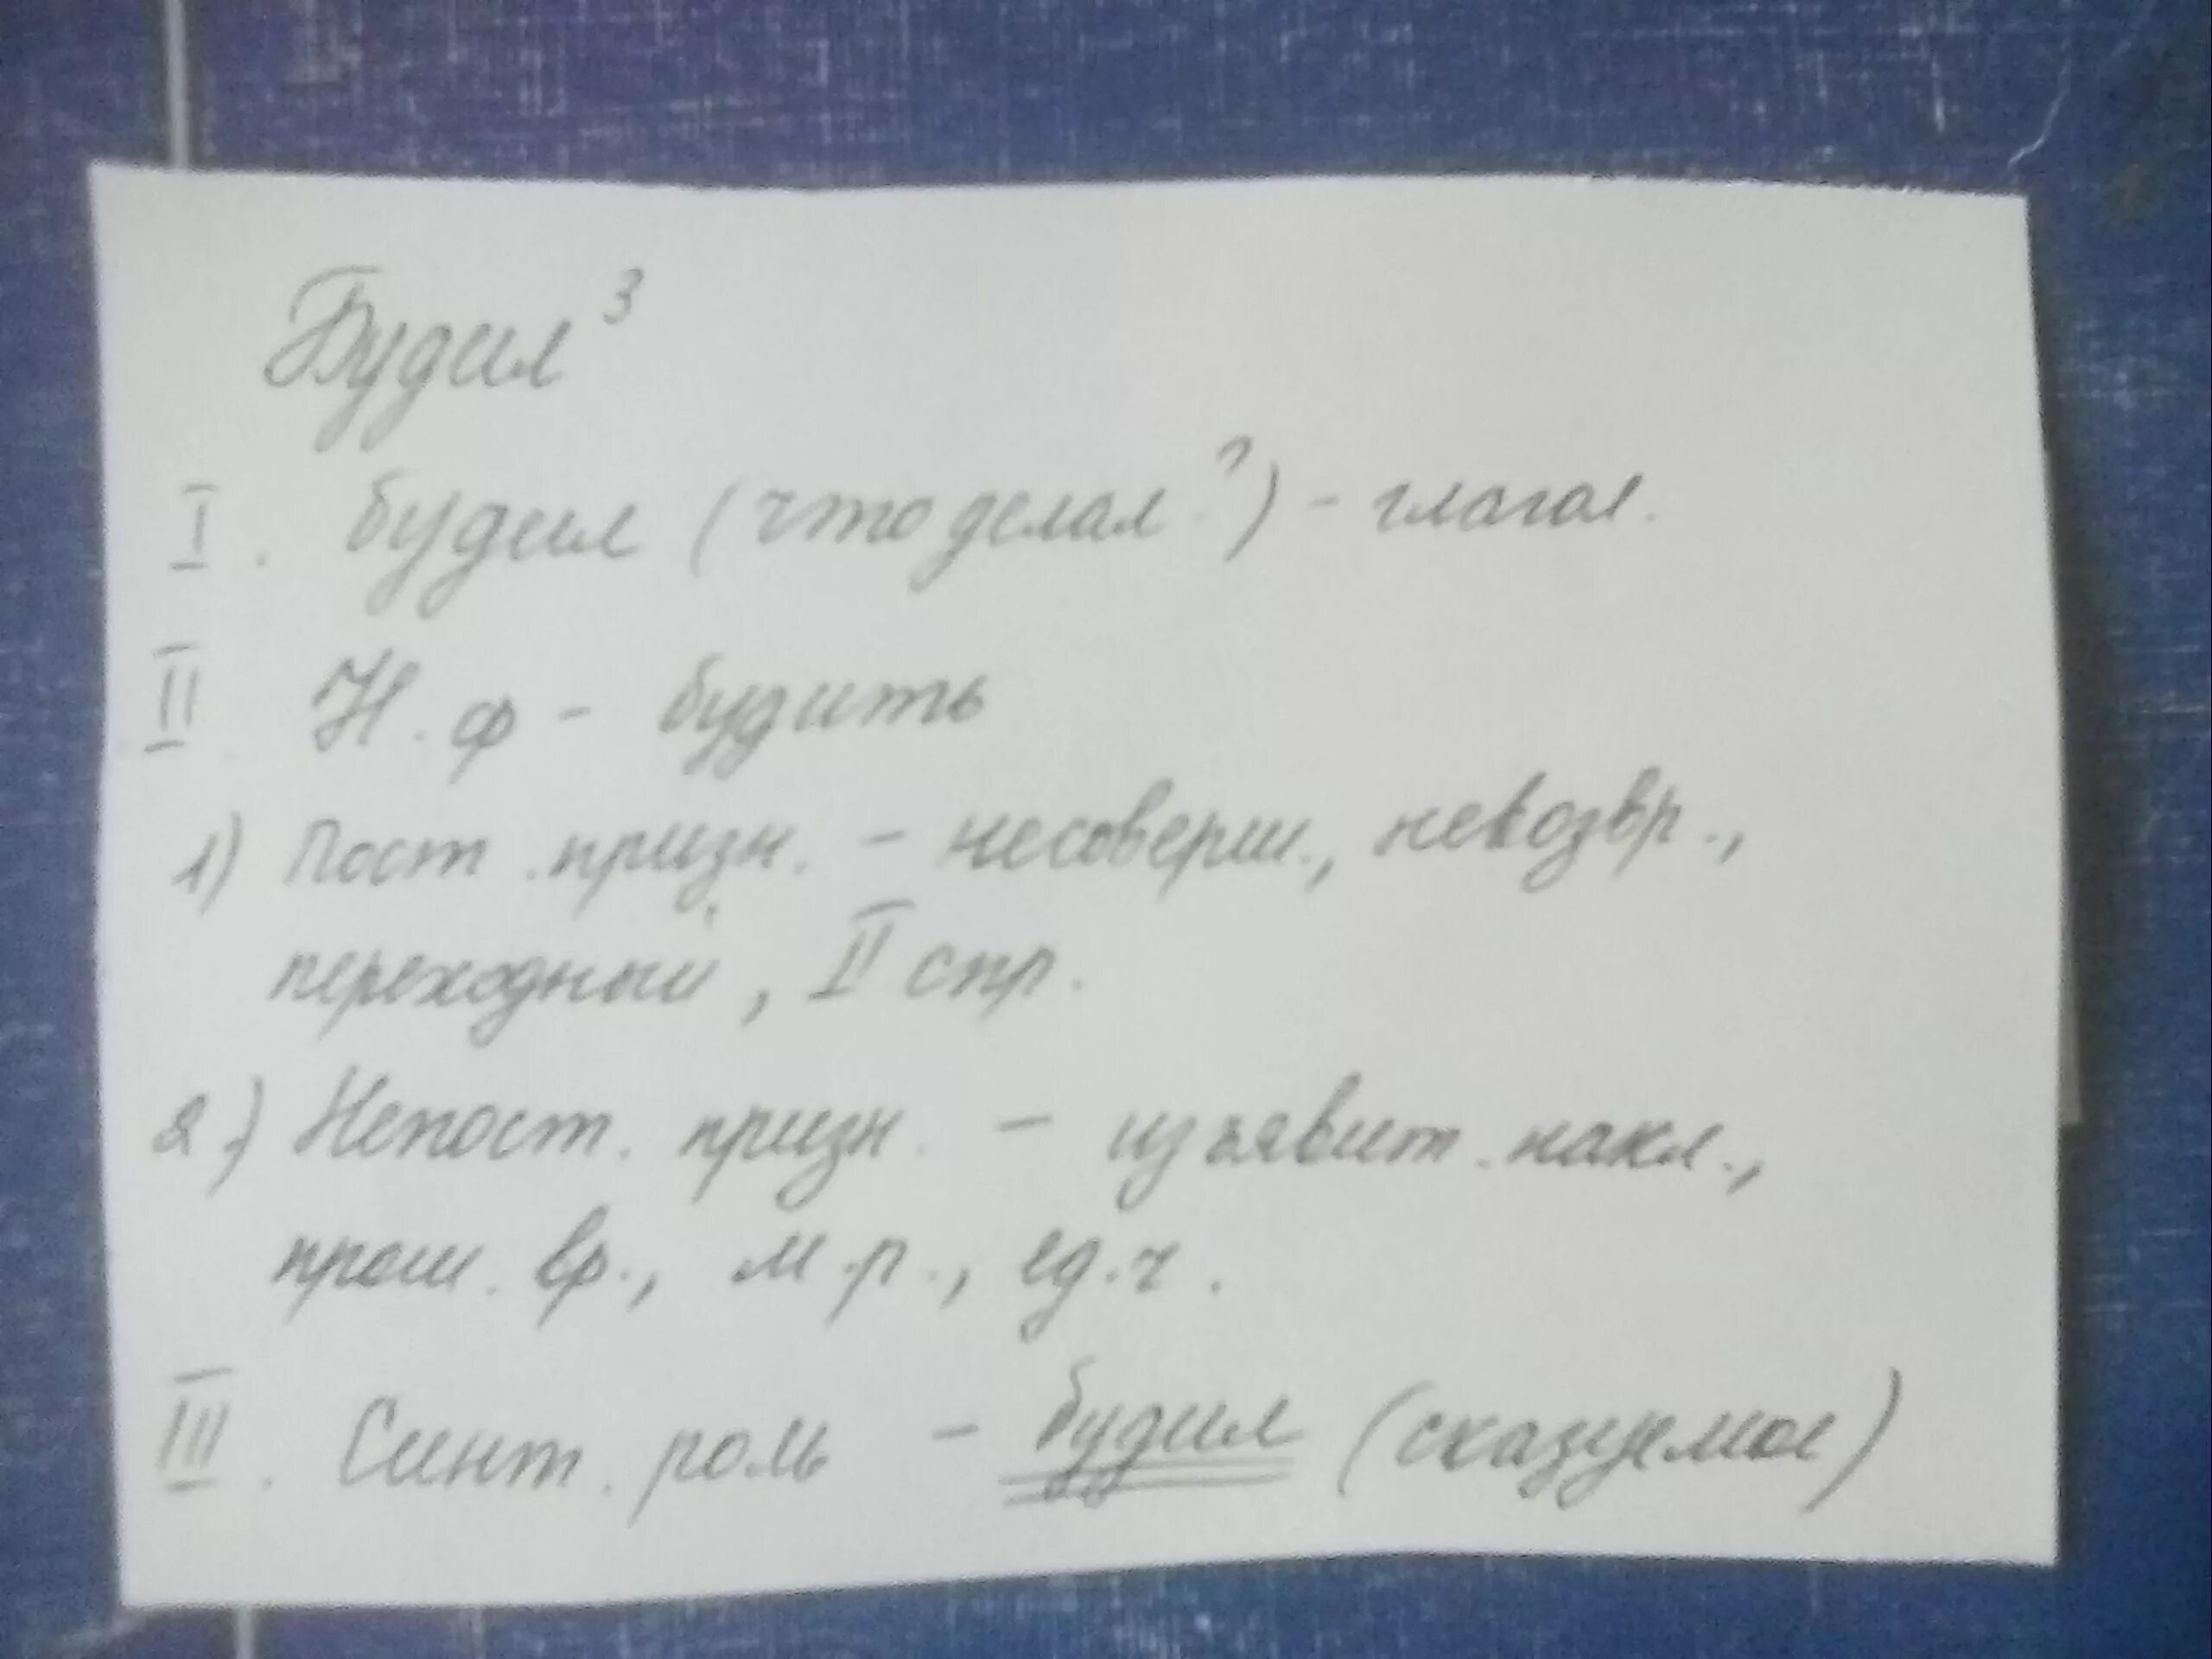 Будил³
I. будил (что делал?) - глагол.
II Н.ф - будить
1) Пост.призн. - несоверш., невозвр.,
переходный, II спр.
2) Непост. призн. - изъявит.накл.,
прош. вр., м.р., ед.ч.
III. Синт. роль - будил (сказуемое)